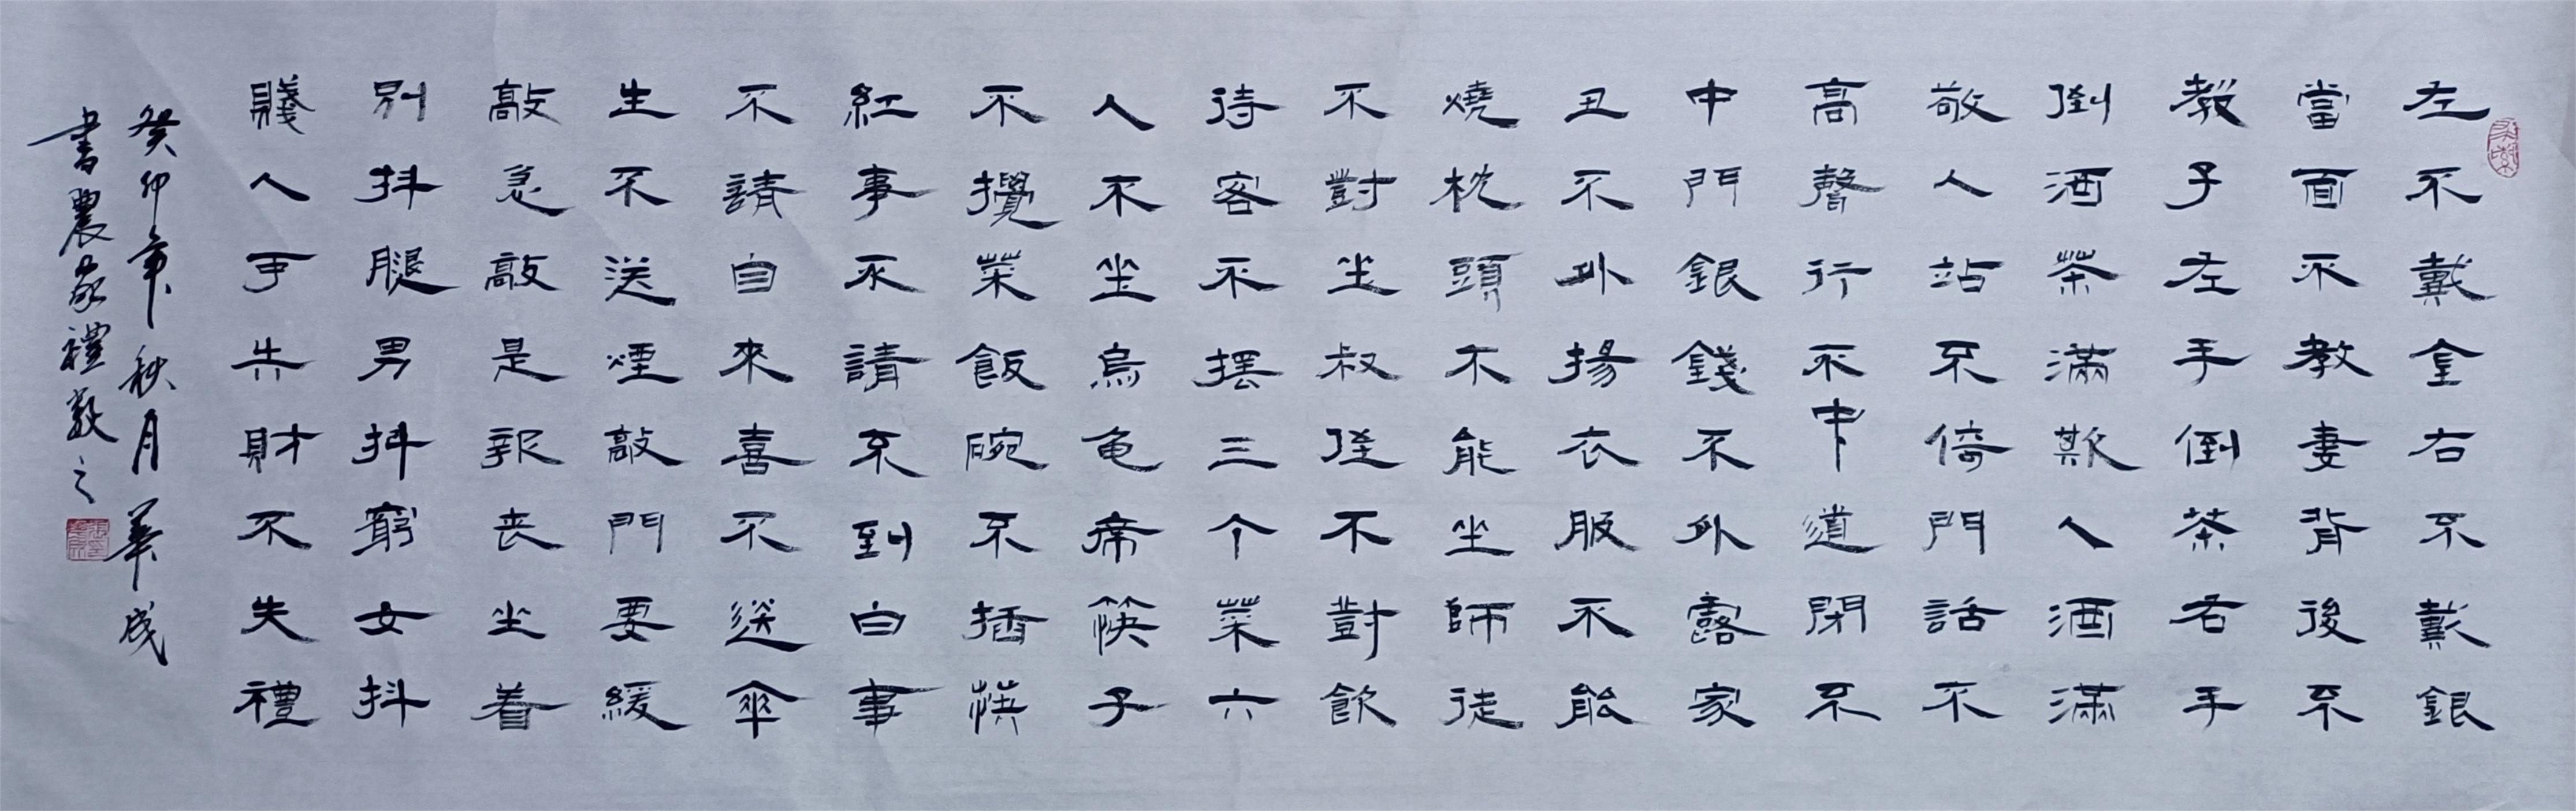 左不戴金右不戴銀
當面不教妻背後不
教子左手倒茶右手
倒酒茶滿欺人酒滿
敬人站不倚門話不
高聲行不中道閉不
中門銀錢不外露家
丑不外揚衣服不能
燒枕頭不能坐師徒
不對坐叔侄不對飲
待客不擺三个菜六
人不坐烏龟席筷子
不攪菜飯碗不插筷
紅事不請不到白事
不請自來喜不送傘
生不送煙敲門要緩
敲急敲是報丧坐着
别抖腿男抖窮女抖
賤人可失財不失禮
癸卯年秋月華成
書農家禮數之